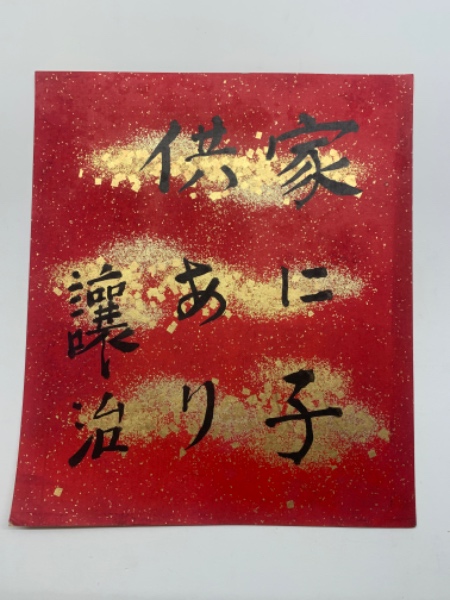 家に子
供あり
讓治